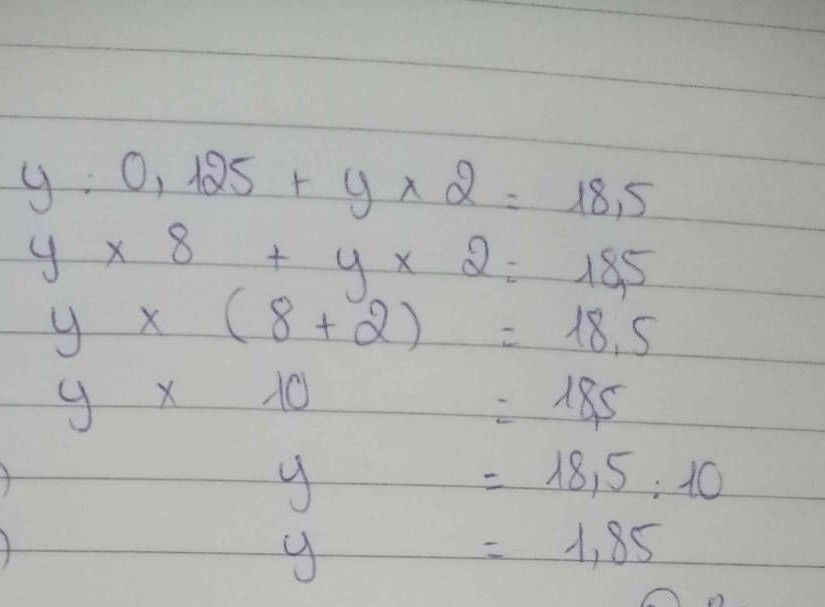 y : 0,125 + y x 2 = 18,5
y x 8 + y x 2 = 18,5
y x (8 + 2) = 18,5
y x 10 = 18,5
y = 18,5 : 10
y = 1,85